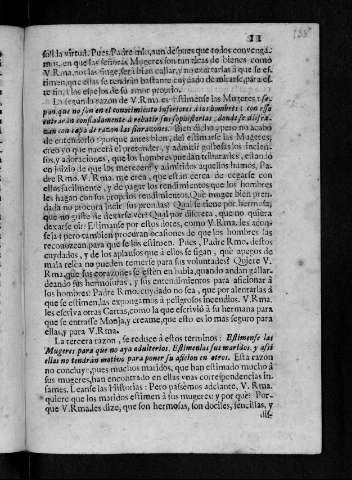 11
sòla virtud. Pues, Padre mio, aun despues que todos convenga-
mos, en que las señoras Mugeres son tan ricas de bienes como
V. Rma. nos las finge, serà bien callar, y no exortarlas à que se es-
timen, que ellas se tendràn bastante cuydado de mirarse, para es-
te fin, à los espejos de su amor proprio.
La segunda razon de V. Rma. es: Estimense las Mugeres, y se-
pan, que no son en el conocimiento inferiores à los hombres: con esso
entraràn confiadamente à rebatir sus sophisterias, donde se disfra-
zan con capa de razon las sinrazones. Bien dicho; pero no acabo
de entenderlo: porque antes bien, del estimarse las Mugeres,
creo yo que nace el pretender, y admitir gustosas los incien-
sos, y adoraciones, que los hombres puedan tributarles, estando
en juizio de que los merecen; y admitidos aquellos humos, Pa-
dre Rmo. V. Rma. me crea, que estàn cerca de cegarse con
ellos facilmente, y de pagar los rendimientos que los hombres
les hagan con sus proprios rendimientos. Què muger bien pren-
dada no procura lucir sus prendas? Qual se tiene por hermosa,
que no guste de dexarse vèr? Qual por discreta, que no quiera
dexarse oìr? Estimanse por estos dotes, como V. Rma. les acon-
seja; pero tambien procuran ocasiones de que los hombres las
reconozcan, para que se los estimen. Pues, Padre Rmo. destos
cuydados, y de los aplausos que à ellos se sigan, què ayegos de
mala resca no pueden temerse para sus voluntades? Quiere V.
Rma. que sus corazones se estèn en habla, quando andan gallar-
deando sus hermosuras, y sus entendimientos para aficionar à
los hombres? Padre Rmo. cuydado no sea, que por alentarlas à
que se estimen, las expongamos à peligrosos incendios. V. Rma.
les escriva otras Cartas, como la que escriviò à su hermana para
que se entrasse Monja, y creame, que esto es lo mas seguro para
ellas, y para V. Rma.
La tercera razon, se reduce à estos terminos: Estimense las
Mugeres para que no aya adulterios. Estimenlas sus maridos, y assi
ellas no tendràn motivo para poner su aficion en otros. Esta razon
no concluye, pues muchos maridos, que han estimado mucho à
sus mugeres, han encontrado en ellas unas correspondencias in-
fames. Leanse las Historias: Pero passemos adelante. V. Rma.
quiere que los maridos estimen à sus mugeres: y por què? Por-
que V. Rma. les dize, que son hermosas, son dociles, sencillas, y
dis-